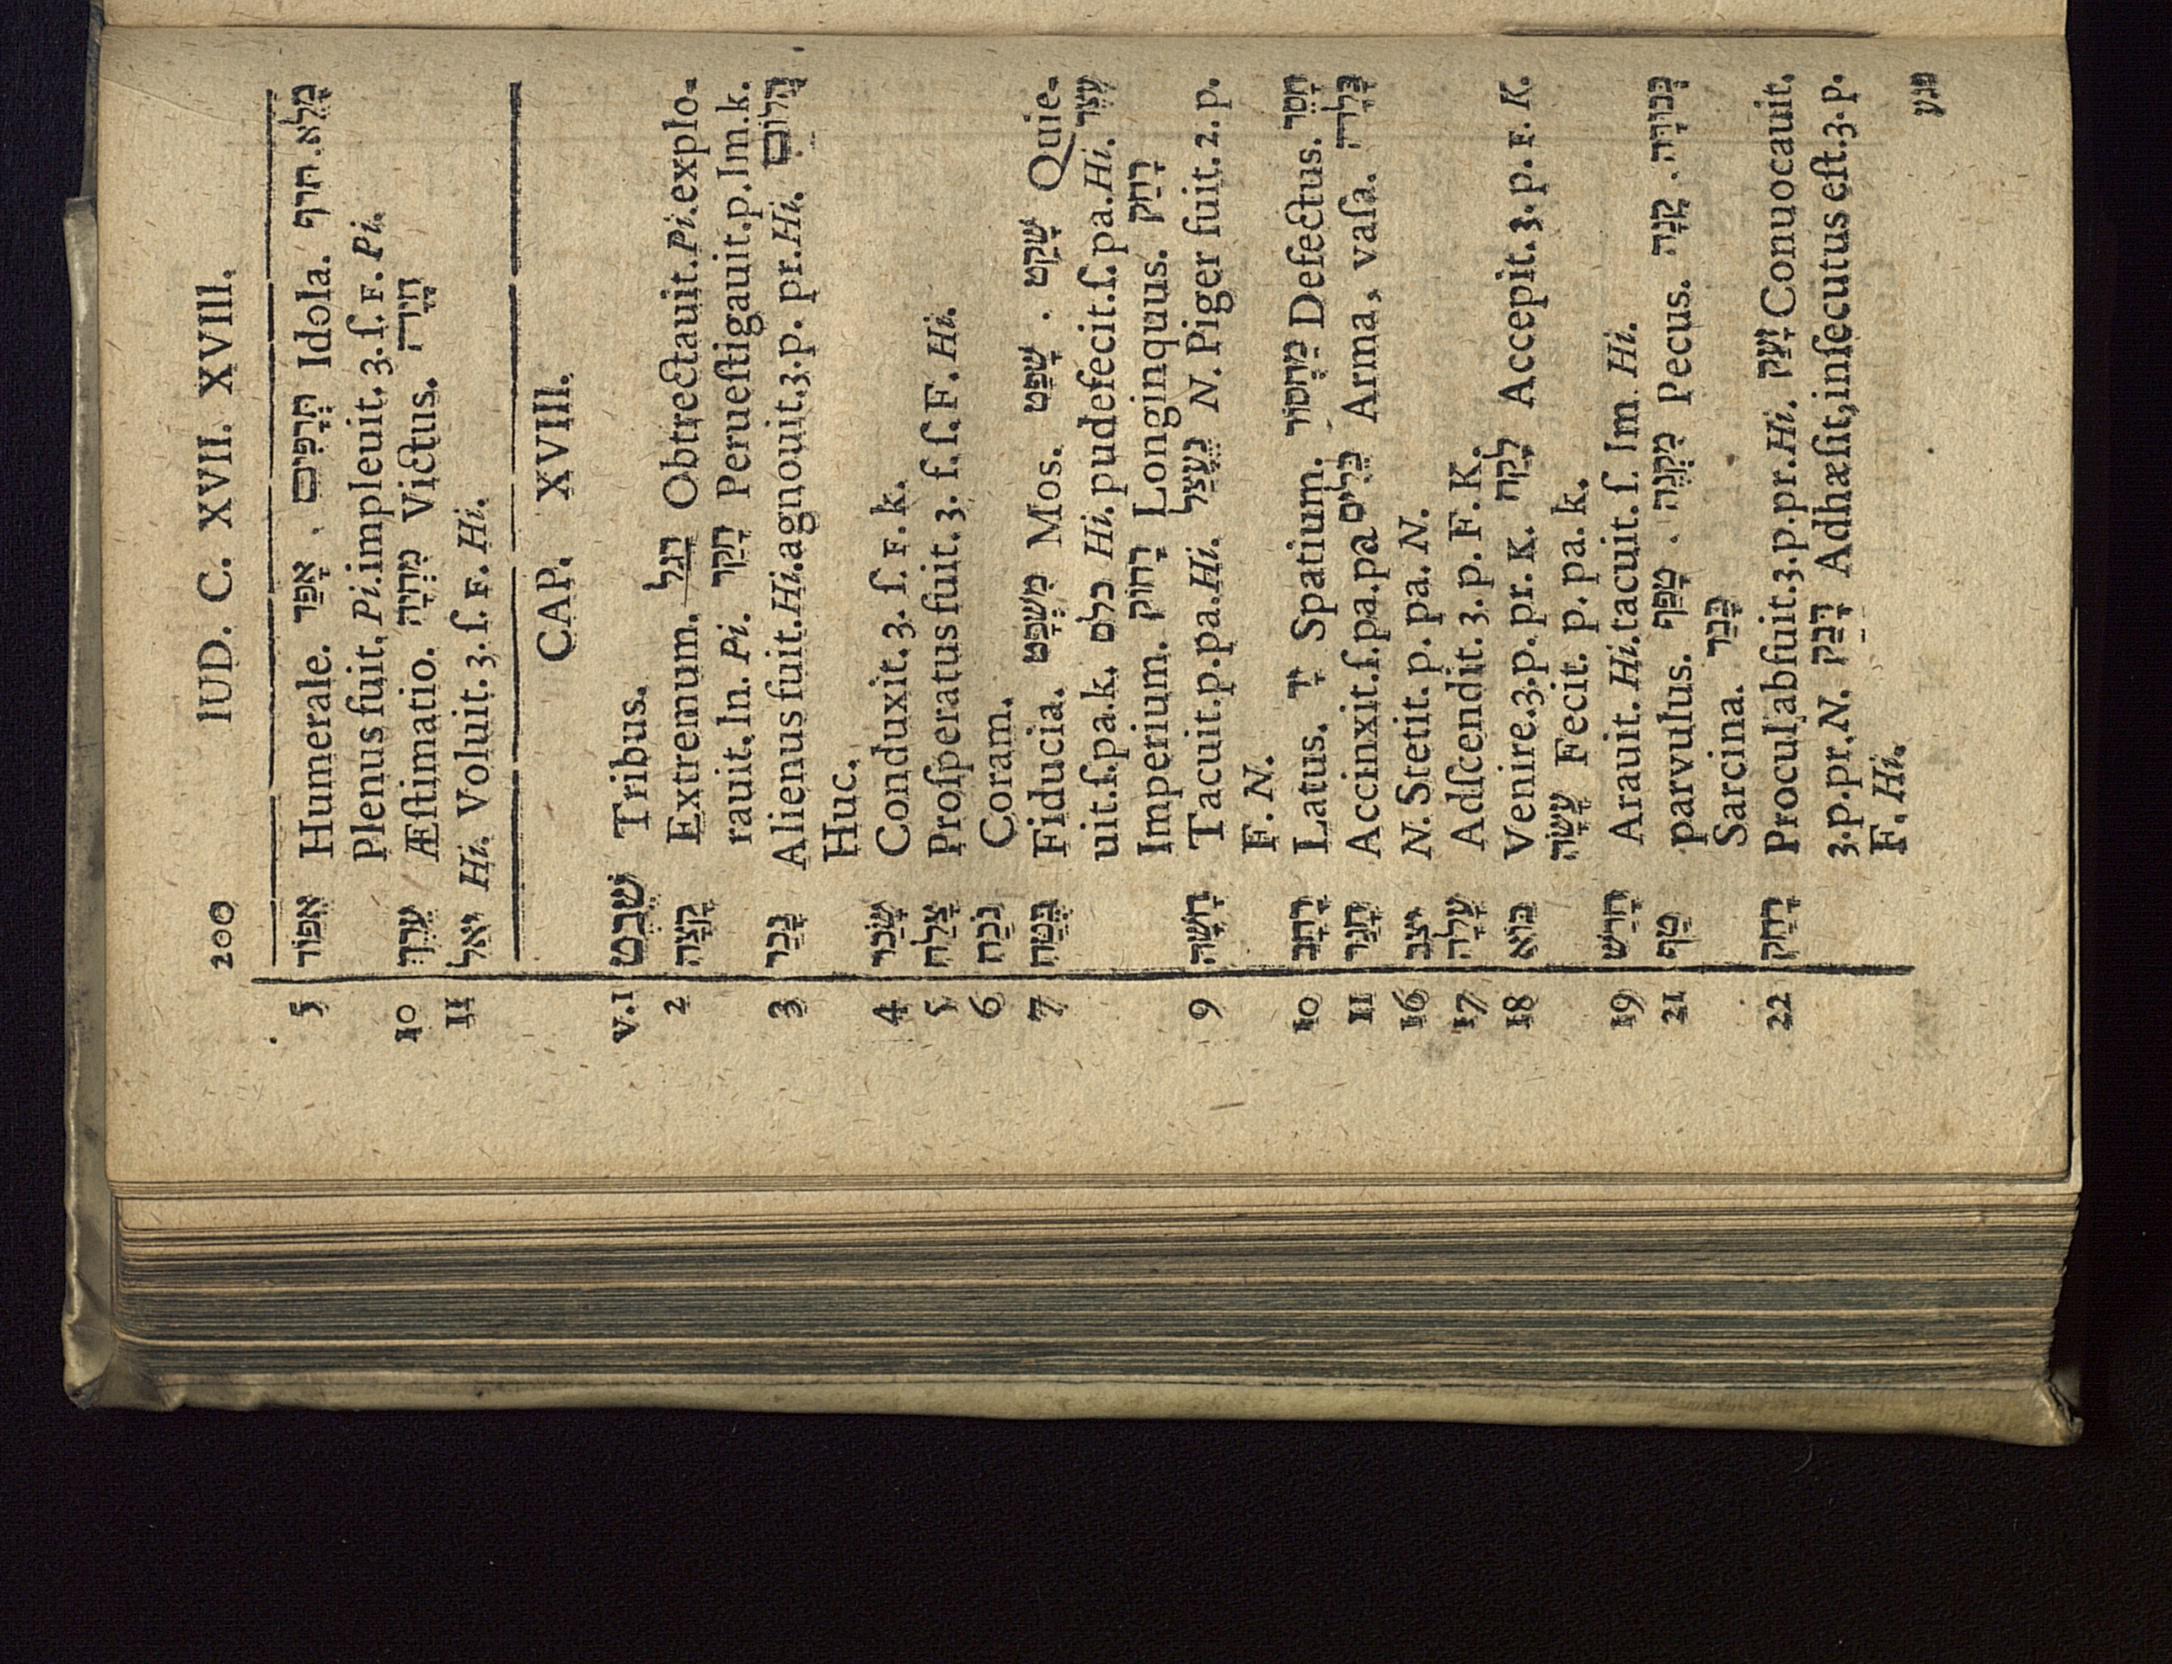 200 IUD. C. XVII. XVIII.
5 אֵפוֹד Humerale. אָפַד . תְּרָפִים Idola. תרף .מָלֵא
Plenus fuit. Pi. impleuit. 3. ſ. F. Pi.
10 עֵרֶךְ Æſtimatio. מִחְיָה Victus. חָיָה
11 יאל Hi. Voluit. 3. ſ. F. Hi.
CAP. XVIII.
v.1 שֵׁבֶט Tribus.
2 קָצָה Extremum. רָגַל Obtrectauit. Pi. explo-
rauit. In. Pi. חָקַר Perueſtigauit. p. Im. k.
3 נָכַר Alienus fuit. Hi. agnouit. 3. p. pr. Hi. הֲלוֹם
Huc.
4 שָׂכַר Conduxit. 3. ſ. F. k.
5 צָלַח Proſperatus fuit. 3. ſ. ſ. F. Hi.
6 נֹכַח Coram.
7 בֶּטַח Fiducia. מִשְׁפָּט Mos. שָׁפַט . שָׁקַט Quie-
uit. ſ. pa. k. כלם Hi. pudefecit. ſ. pa. Hi. עֶצֶר
Imperium. רָחוֹק Longinquus. רָחַק
9 חָשָׁה Tacuit. p. pa. Hi. נֶעֱצַל N. Piger fuit. 2. p.
F. N.
10 רָחַב Latus. יָד Spatium. מַחְסוֹר Defectus. חָסֵר
11 חָגַר Accinxit. ſ. pa. pa כֵּלִים Arma, vaſa. כָּלָה
16 יצב N. Stetit. p. pa. N.
17 עָלָה Adſcendit. 3. p. F. K.
18 בּוֹא Venire. 3. p. pr. K. לָקַח Accepit. 3. p. F. K.
עָשָׂה Fecit. p. pa. k.
19 חָרַשׁ Arauit. Hi. tacuit. ſ. Im. Hi.
21 טַף parvulus. טָפַף . מִקְנֶה Pecus. קָנָה . כְּבוּדָּה
Sarcina. כָּבַד
22 רָחַק Procul abfuit. 3. p. pr. Hi. זָעַק Conuocauit.
3. p. pr. N. דָּבַק Adhæſit, inſecutus eſt. 3. p.
F. Hi.
פגע